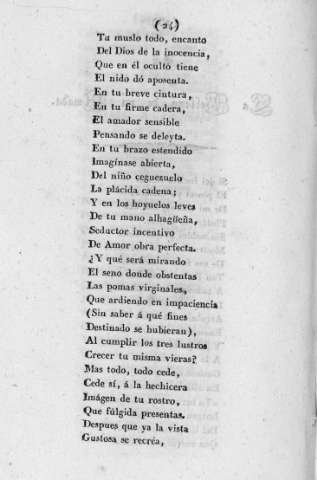 (24)
Tu muslo todo, encanto
Del Dios de la inocencia,
Que en él oculto tiene
El nido dó aposenta.
En tu breve cintura,
En tu firme cadera,
El amador sensible
Pensando se deleyta.
En tu brazo estendido
Imagínase abierta,
Del niño ceguezuelo
La plácida cadena;
Y en los hoyuelos leves
De tu mano alhagüeña,
Seductor incentivo
De Amor obra perfecta.
¿Y qué será mirando
El seno donde obstentas
Las pomas virginales,
Que ardiendo en impaciencia
(Sin saber á qué fines
Destinado se hubieran),
Al cumplir los tres lustros
Crecer tu misma vieras?
Mas todo, todo cede,
Cede sí, á la hechicera
Imágen de tu rostro,
Que fúlgida presentas.
Despues que ya la vista
Gustosa se recréa,